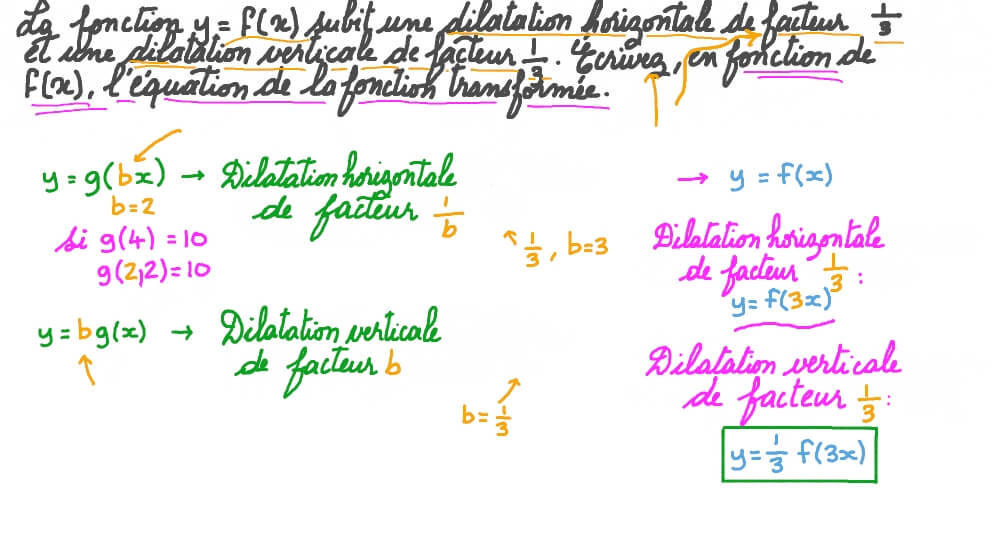 La fonction y = f(x) subit une dilatation horizontale de facteur 1/3
et une dilatation verticale de facteur 1/3. Écrivez, en fonction de
f(x), l'équation de la fonction transformée.
y = g(bx) → Dilatation horizontale
de facteur 1/b
b=2
Si g(4) = 10
g(2,2) = 10
1/3, b=3
y = bg(x) → Dilatation verticale
de facteur b
b = 1/3
→ y = f(x)
Dilatation horizontale
de facteur 1/3 :
y = f(3x)
Dilatation verticale
de facteur 1/3 :
y = 1/3 f(3x)